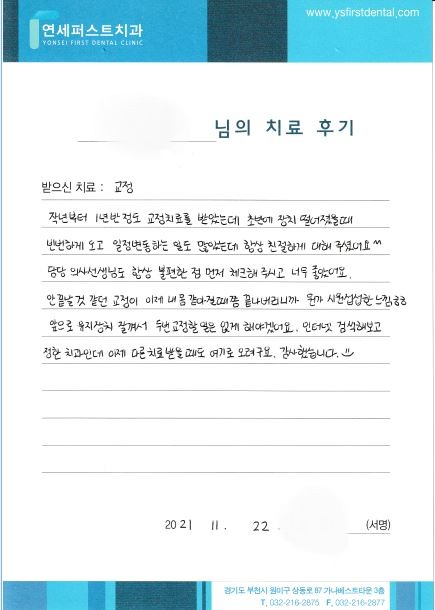 www.ysfirstdental.com
연세퍼스트치과
YONSEI FIRST DENTAL CLINIC
님의 치료 후기
받으신 치료 : 교정
작년부터 1년반정도 교정치료를 받았는데 초반에 장치 떨어졌을때
빈번하게 오고 일정변동하는 일도 많았는데 항상 친절하게 대해 주셨어요^^
담당 의사선생님도 항상 불편한 점 먼저 체크해 주시고 너무 좋았어요.
안끝날것 같던 교정이 이제 내 몸 같아질때쯤 끝나버리니까 뭔가 시원섭섭한 느낌ㅎㅎ
앞으로 유지장치 잘껴서 두번교정할 일은 없게 해야겠어요. 인터넷 검색해보고
정한 치과인데 이제 다른치료 받을때도 여기로 오려구요. 감사했습니다.
2021 11. 22 (서명)
경기도 부천시 원미구 상동로 87 가나베스트타운 3층
T. 032-216-2875 F. 032-216-2877